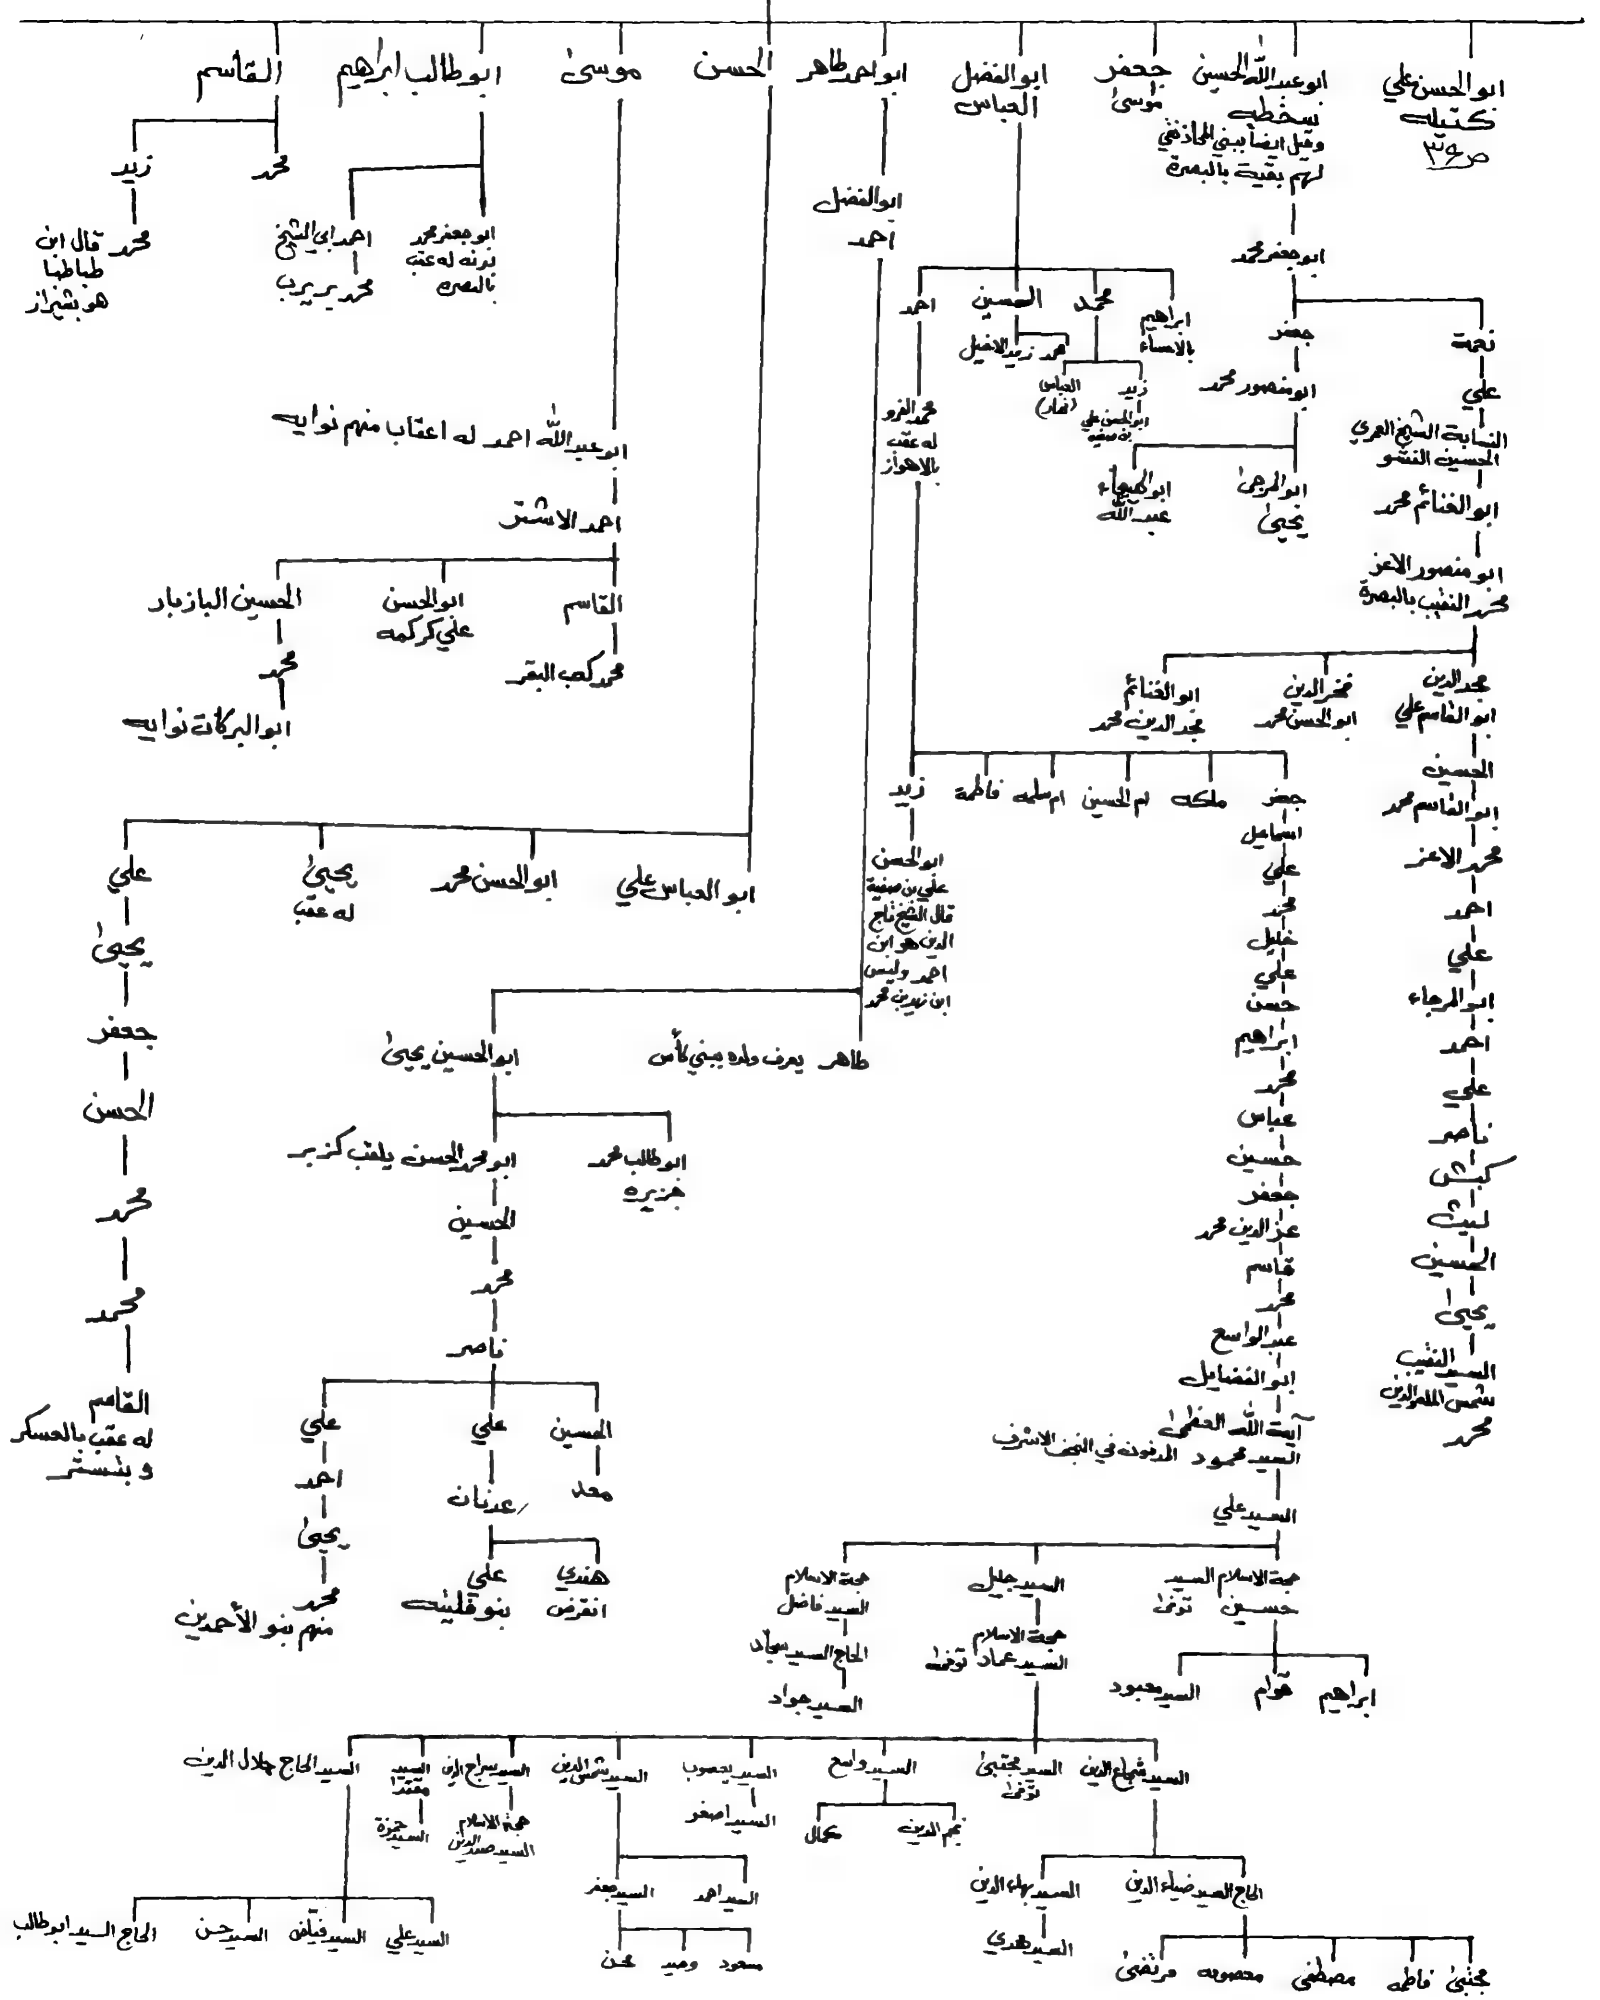 ابو الحسن علي
كتيله
ابو عبد الله الحسين
سخطه
وقيل ايضاً ببني
لهم بقية بالبصرة
جعفر
موسى
ابو الفضل
العباس
ابو احمد طاهر
الحسن
موسى
ابو طالب ابراهيم
القاسم
محمد
زيد
محمد
قال ابن
طباطبا
هو بشيراز
ابو جعفر محمد
له عقب
بالبصره
احمد ابي الشيخ
محمد
ابو الفضل
احمد
ابو جعفر محمد
نعمة
جعفر
علي
النسابة الشيخ العمري
الحسين
ابو الغنائم محمد
ابو منصور الاعز
محمد النقيب بالبصرة
ابو منصور محمد
ابو المرجى
يحيى
ابو الهيجاء
عبد الله
ابراهيم
بالاحساء
محمد
الحسين
احمد
زيد
ابو الحسن علي
بن صفيه
العباس
حمد
زيد
محمد
له عقب
بالاهواز
ابو عبد الله احمد له اعقاب منهم نوايه
احمد الاشتر
القاسم
ابو الحسن
علي كركمه
الحسين البازباز
محمد كعب البقر
محمد
ابو البركات نوايه
مجد الدين
ابو القاسم علي
فخر الدين
ابو الحسن محمد
ابو الغنائم
مجد الدين محمد
الحسين
ابو القاسم محمد
محمد الاعز
احمد
علي
ابو المرجاء
احمد
علي
ناصر
كبش
ليث
الحسين
يحيى
السيد النقيب
شمس المله والدين
محمد
جعفر
ملكه
ام الحسين
ام سلمه
فاطمة
زيد
ابو الحسن
علي بن صفية
قال الشيخ تاج
الدين هو ابن
احمد وليس
ابن زيد بن محمد
اسماعيل
علي
محمد
خليل
علي
حسن
ابراهيم
محمد
عباس
حسين
جعفر
عز الدين محمد
قاسم
محمد
عبد الواسع
ابو الفضايل
آية الله العظمى
السيد محمود المدفون في النجف الاشرف
السيد علي
ابو العباس علي
ابو الحسن محمد
يحيى
له عقب
علي
يحيى
جعفر
الحسن
محمد
محمد
القاسم
له عقب بالعسكر
و بتستر
طاهر يعرف ولده ببني كأس
ابو الحسين يحيى
ابو طالب محمد
خزيره
ابو محمد الحسن يلقب كزبر
الحسين
محمد
ناصر
الحسين
علي
علي
معد
عدنان
احمد
يحيى
محمد
منهم بنو الأحمدين
هندي
انقرض
علي
بنو قليته
حجة الاسلام السيد
حسين توفى
السيد جليل
حجة الاسلام
السيد فاضل
حجة الاسلام
السيد عماد توفى
الحاج السيد سجاد
السيد جواد
ابراهيم
قوام
السيد معبود
السيد شجاع الدين
السيد مجتبى
توفى
السيد واسع
السيد يعسوب
السيد شمس الدين
السيد سراج الدين
السيد
مقتدا
السيد الحاج جلال الدين
نجم الدين
كمال
السيد اصغر
حجة الاسلام
السيد صدر الدين
السيد حمزة
الحاج السيد ضياء الدين
السيد بهاء الدين
السيد احمد
السيد جعفر
السيد مهدي
السيد علي
السيد فياض
السيد حسن
الحاج السيد ابو طالب
مسعود
وحيد
محسن
مجتبى
فاطمه
مصطفى
معصومه
مرتضى